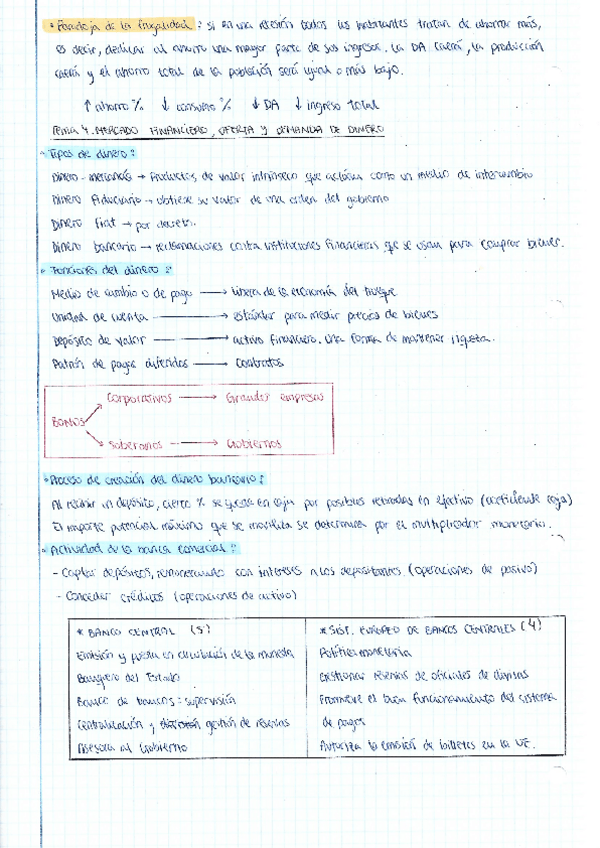 • Paradoja de la frugalidad: si en una recesión todos los habitantes tratan de ahorrar más,
es decir, dedicar al ahorro una mayor parte de sus ingresos. La DA caerá, la producción
caerá y el ahorro total de la población será igual o más bajo.
↑ ahorro % ↓ consumo % ↓ DA ↓ ingreso total
TEMA 4. MERCADO FINANCIERO, OFERTA Y DEMANDA DE DINERO
• Tipos de dinero:
Dinero - mercancía → Productos de valor intrínseco que actúan como un medio de intercambio
Dinero Fiduciario → obtiene su valor de una orden del gobierno
Dinero Fiat → por decreto.
Dinero bancario → reclamaciones contra instituciones financieras que se usan para comprar bienes.
• Funciones del dinero:
Medio de cambio o de pago → libera de la economía del trueque
Unidad de cuenta → estándar para medir precios de bienes
Depósito de valor → activo financiero. Una forma de mantener riqueza.
Patrón de pagos diferidos → contratos
BONOS
Corporativos → Grandes empresas
Soberanos → Gobiernos
• Proceso de creación del dinero bancario:
Al recibir un depósito, cierto % se queda en caja por posibles retiradas en efectivo (coeficiente caja)
El importe potencial máximo que se moviliza se determina por el multiplicador monetario.
• Actividad de la banca comercial:
- Captar depósitos, remunerando con intereses a los depositantes (operaciones de pasivo)
- Conceder créditos (operaciones de activo)
* BANCO CENTRAL (5)
Emisión y puesta en circulación de la moneda
Banquero del Estado
Banco de bancos: supervisión
Centralización y gestión de reservas
Asesora al Gobierno
* SIST. EUROPEO DE BANCOS CENTRALES (4)
Política monetaria
Gestionar reservas de oficiales de divisas
Promueve el buen funcionamiento del sistema
de pagos
Autoriza la emisión de billetes en la UE.